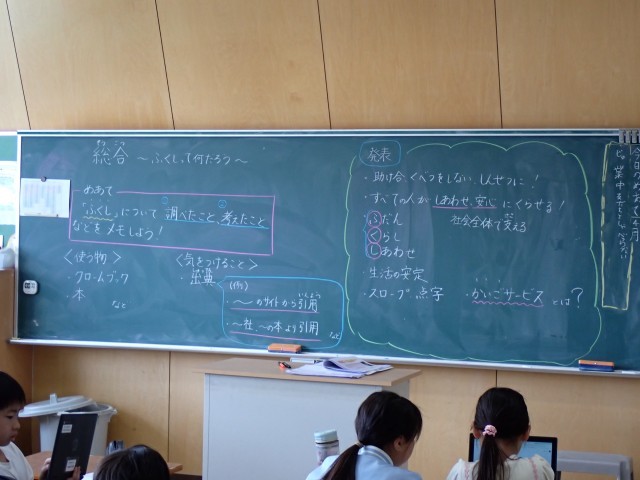 総合 ～ふくしって何だろう～
めあて
①
②
「ふくし」について調べたこと考えたこと
などをメモしよう！
＜使う物＞
・クロームブック
・本
など
＜気をつけること＞
・出典
(例)
いんよう
・～のサイトから引用
・～社、～の本より引用
など
発表
・助け合う くべつをしない しんせつに！
・すべての人が しあわせ、安心にくらせる！
・ふだん
社会全体で支える
くらし
しあわせ
・生活の安定
・スロープ 点字
・かいごサービスとは？